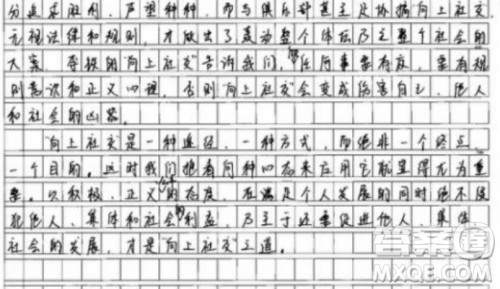 分追求胜利、声望种种，而与俱乐部甚至及协搞"向上社交"
无视法律和规则，才做出了轰动整个体坛乃至整个社会的
大案。夸投的"向上社交"告诉我们，任何事要有度，要有规
则意识和正义四理，否则"向上社交"会变成伤害自己、他人
和社会的凶器。
"向上社交"是一种途径、一种方式，而绝非一个终点
一个目的。这时我们抱着何种心态来应用它就显得尤为重
要。以积极、正义的态度，在满足个人发展的同时绝不侵
犯他人、集体和社会的利益，乃至于还要促进他人、集体
社会的发展，才是"向上社交"之道。
答案圈
MXQE.COM